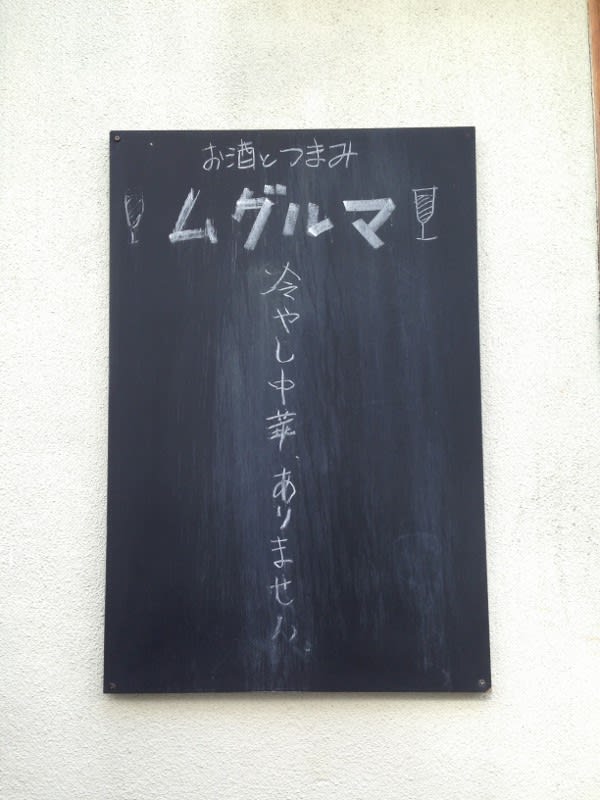 お酒とつまみ
ムグルマ
冷やし中華、ありません。